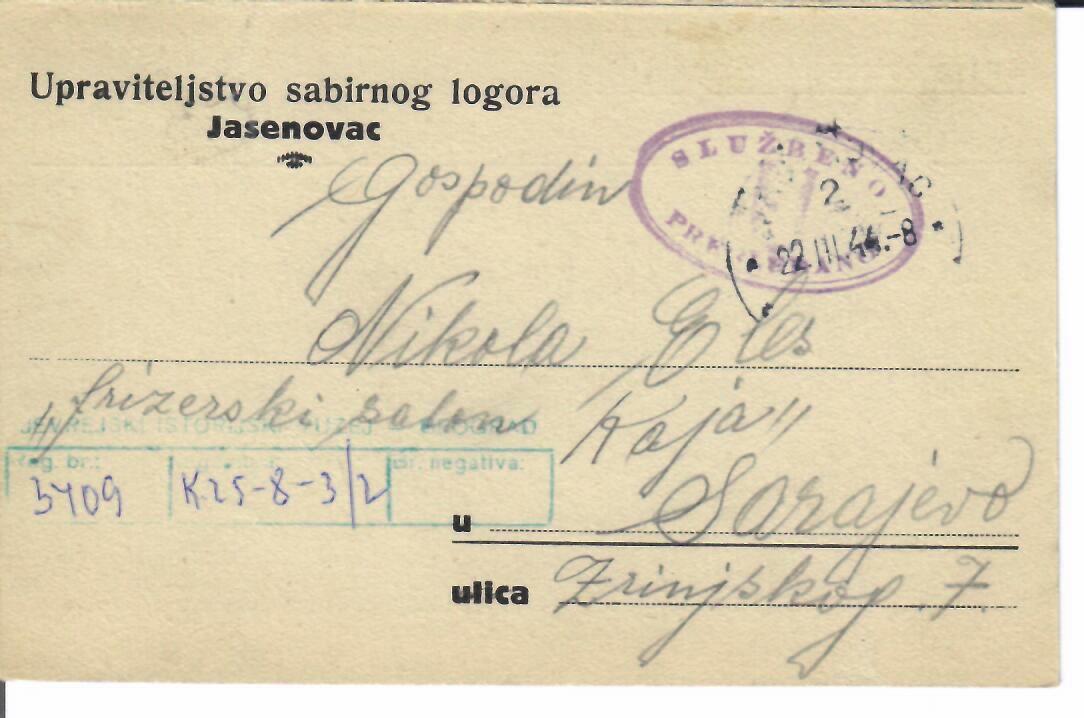 Upraviteljstvo sabirnog logora
Jasenovac
SLUŽBENO
2
22.III.44.-8
Gospodin
Nikola Eles
„frizerski salon Kaja"
JEVREJSKI ISTORIJSKI MUZEJ - BEOGRAD
Reg. br.: Br. negativa:
3409 K.25-8-3/2
u Sarajevo
ulica Zrinjskog. 7.